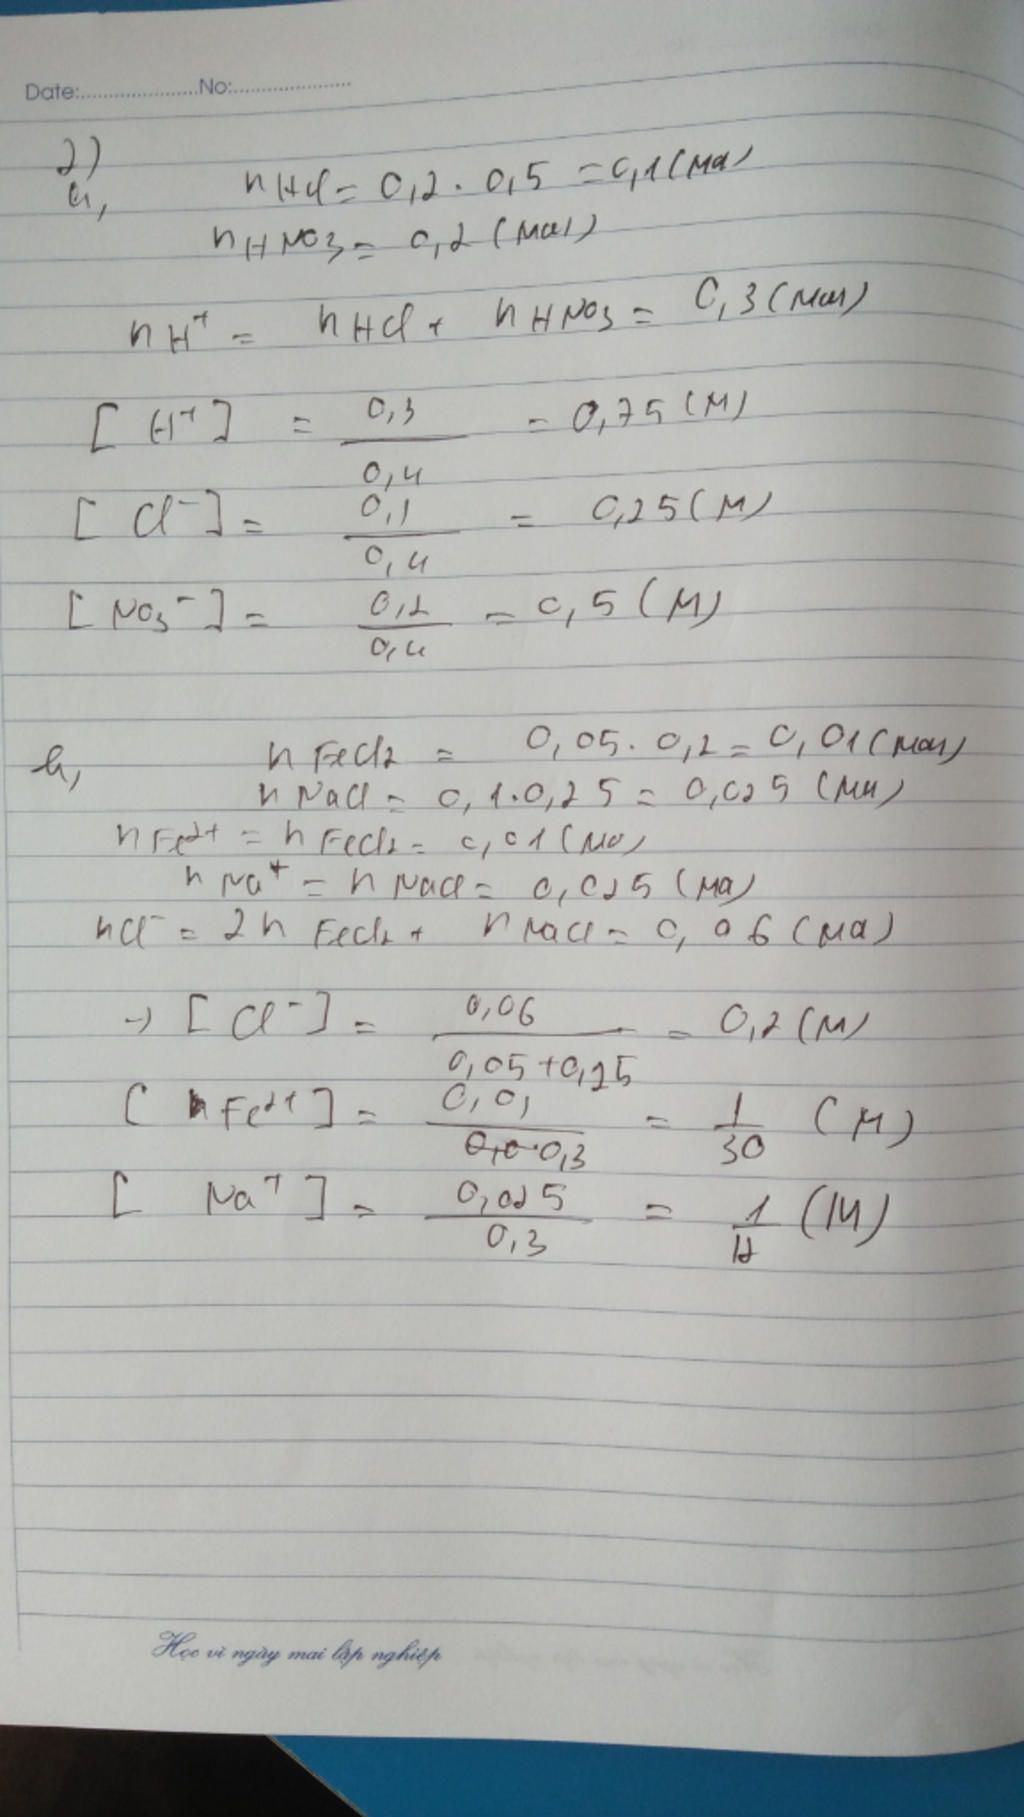 Date:......................No:......................
2)
a, nHCl = 0,2 . 0,5 = 0,1 (mol)
nHNO3 = 0,2 (mol)
nH+ = nHCl + nHNO3 = 0,3 (mol)
[H+] = 0,3 / 0,4 = 0,75 (M)
[Cl-] = 0,1 / 0,4 = 0,25 (M)
[NO3-] = 0,2 / 0,4 = 0,5 (M)
b, nFeCl2 = 0,05 . 0,2 = 0,01 (mol)
nNaCl = 0,1 . 0,25 = 0,025 (mol)
nFe2+ = nFeCl2 = 0,01 (mol)
nNa+ = nNaCl = 0,025 (mol)
nCl- = 2n FeCl2 + nNaCl = 0,06 (mol)
→ [Cl-] = 0,06 / 0,05 + 0,25 = 0,2 (M)
[Fe2+] = 0,01 / 0,3 = 1/30 (M)
[Na+] = 0,025 / 0,3 = 1/12 (M)
Học vì ngày mai lập nghiệp